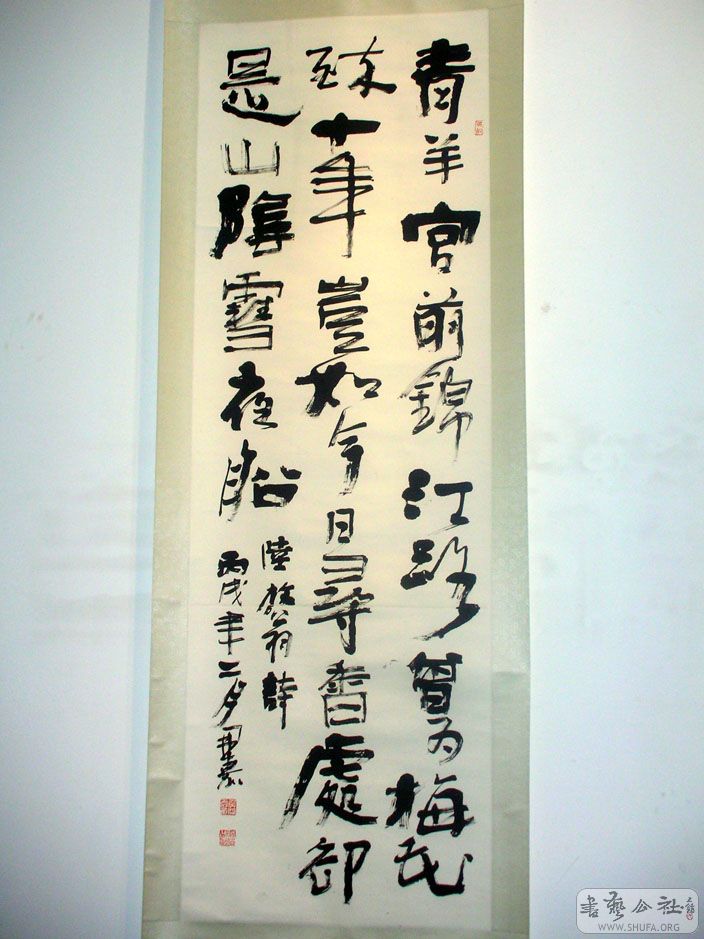 青羊宮前錦江路曾为梅花
醉十年豈知今日尋香處却
是山陰雪夜船
陸放翁詩
丙戌年二月
書藝公社
WWW.SHUFA.ORG